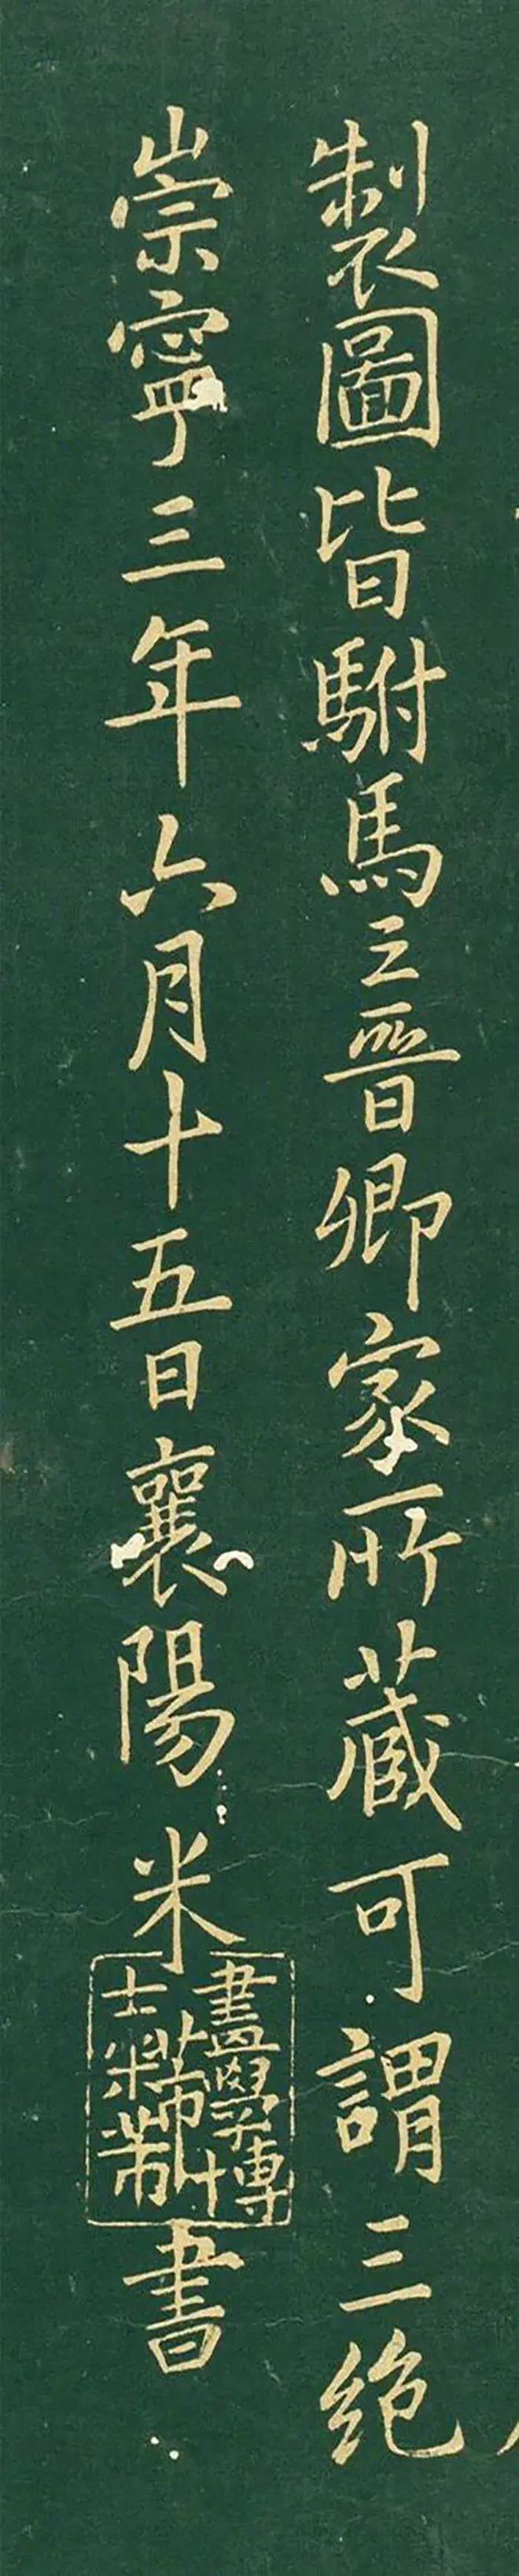 製圖皆駙馬之晉卿家所藏可謂三絶
崇寧三年六月十五日襄陽米芾書
畫學博
士米芾